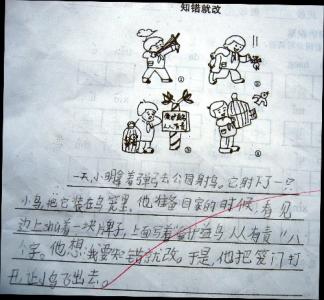 知错就改
①
②
爱护益鸟
人人有责
③
④
一天,小明拿着弹弓去公园射鸟。它射下了一只
小鸟,把它装在鸟笼里。他准备回家的时候,看见
边上湘着一块牌子,上面写着“爱护益鸟人人有责”八
个字。他想:我要知错就改。于是,他把笼门打
开,让小鸟飞出去。